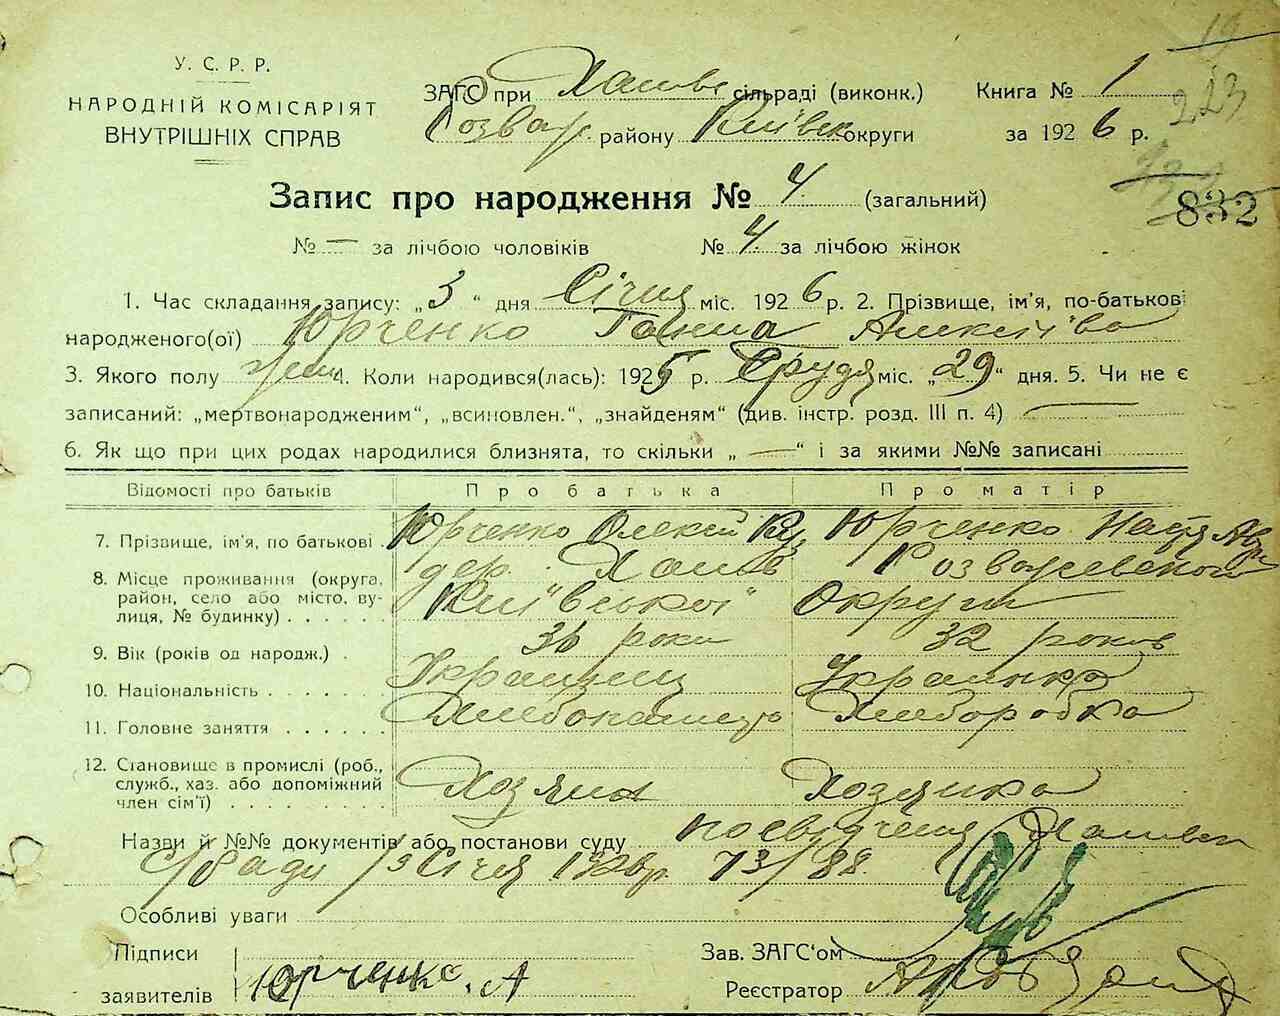 У. С. Р. Р.
НАРОДНІЙ КОМІСАРІЯТ
ВНУТРІШНІХ СПРАВ
ЗАГС при сільраді (виконк.)
Розваж. району Київськ округи
Книга № 1
за 1926 р.
223
832
Запис про народження № 4 (загальний)
№ — за лічбою чоловіків № 4 за лічбою жінок
1. Час складання запису: „3“ дня Січня міс. 1926 р. 2. Прізвище, ім'я, по-батькові
народженого(ої) Юрченко Ганна Алексіїва
3. Якого полу жін. 4. Коли народився(лась): 1925 р. Грудя міс. „29“ дня. 5. Чи не є
записаний: „мертвонародженим“, „всиновлен.“, „знайденям“ (див. інстр. розд. III п. 4) —
6. Як що при цих родах народилися близнята, то скільки „ — “ і за якими №№ записані
Відомості про батьків Про батька Про матір
7. Прізвище, ім'я, по батькові Юрченко Олексій Юрченко Настя
8. Місце проживання (округа, район, село або місто, вулиця, № будинку) дер. Розважевского
Київської Округи
9. Вік (років од народж.) 36 роки 32 роков
10. Національність Украинец Украинка
11. Головне заняття Хлеборобка
12. Становище в промислі (роб., служб., хаз. або допоміжний член сім'ї) Хозяин Хозяйка
Назви й №№ документів або постанови суду посвідчення
с/ради 3 Січня 1926р. 73/88.
Особливі уваги
Підписи
заявителів Юрченко. А
Зав. ЗАГС'ом
Реєстратор